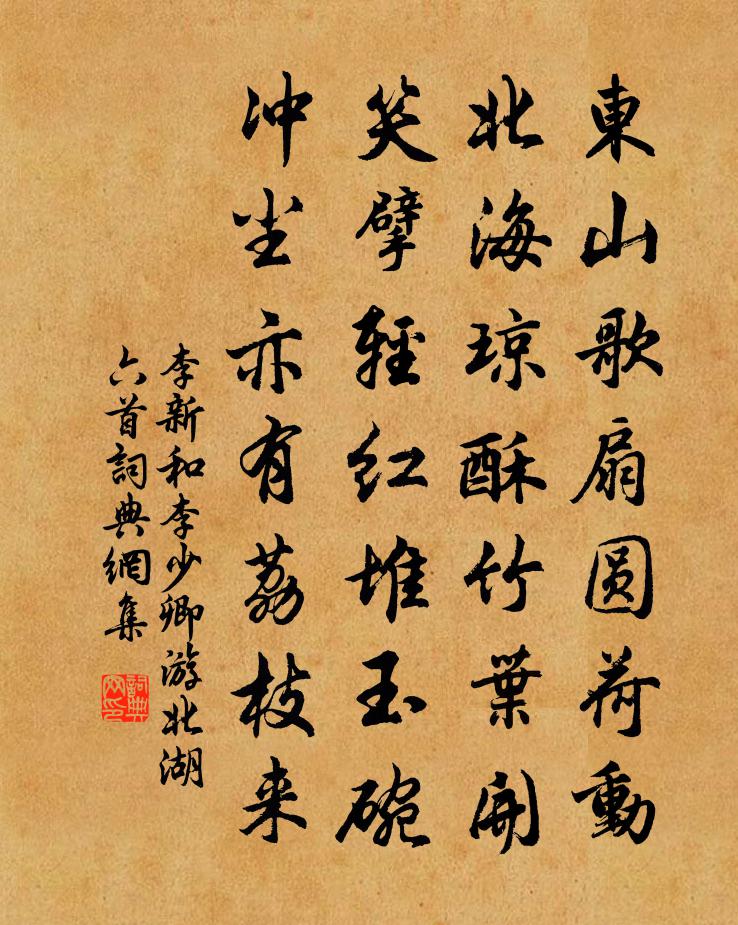 東山歌扇圆荷動
北海琼酥竹葉開
笑擘輕红堆玉碗
冲尘亦有荔枝来
李新和李少卿游北湖
六首詞典網集
詞典
网印